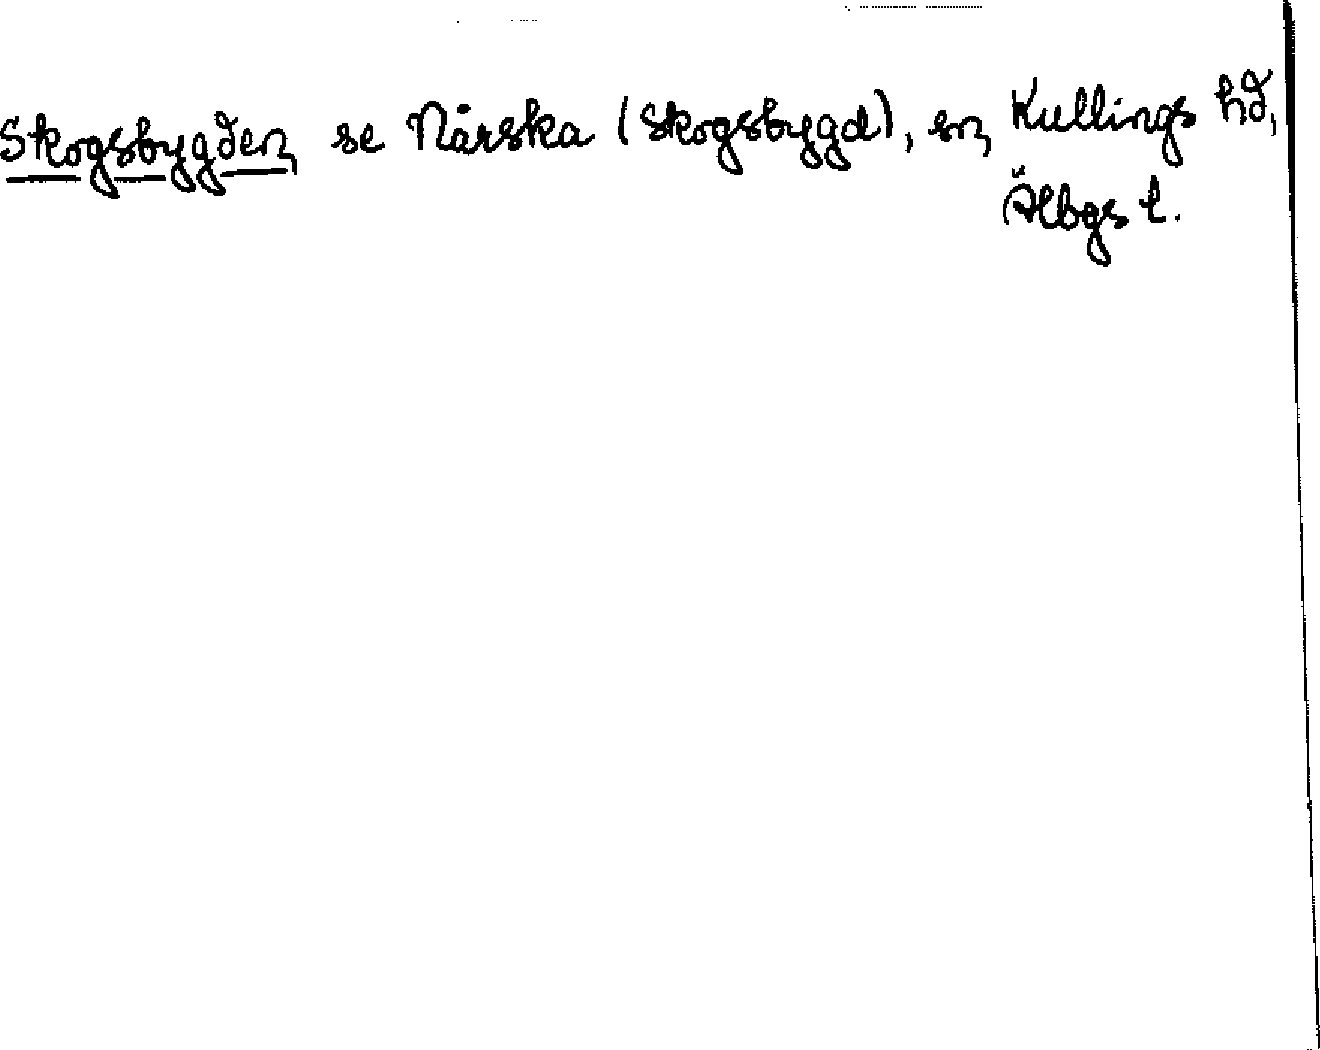 Skogsbygden se Nårska (Skogsbygd), sn, Kullings hd,
Älbgs l.